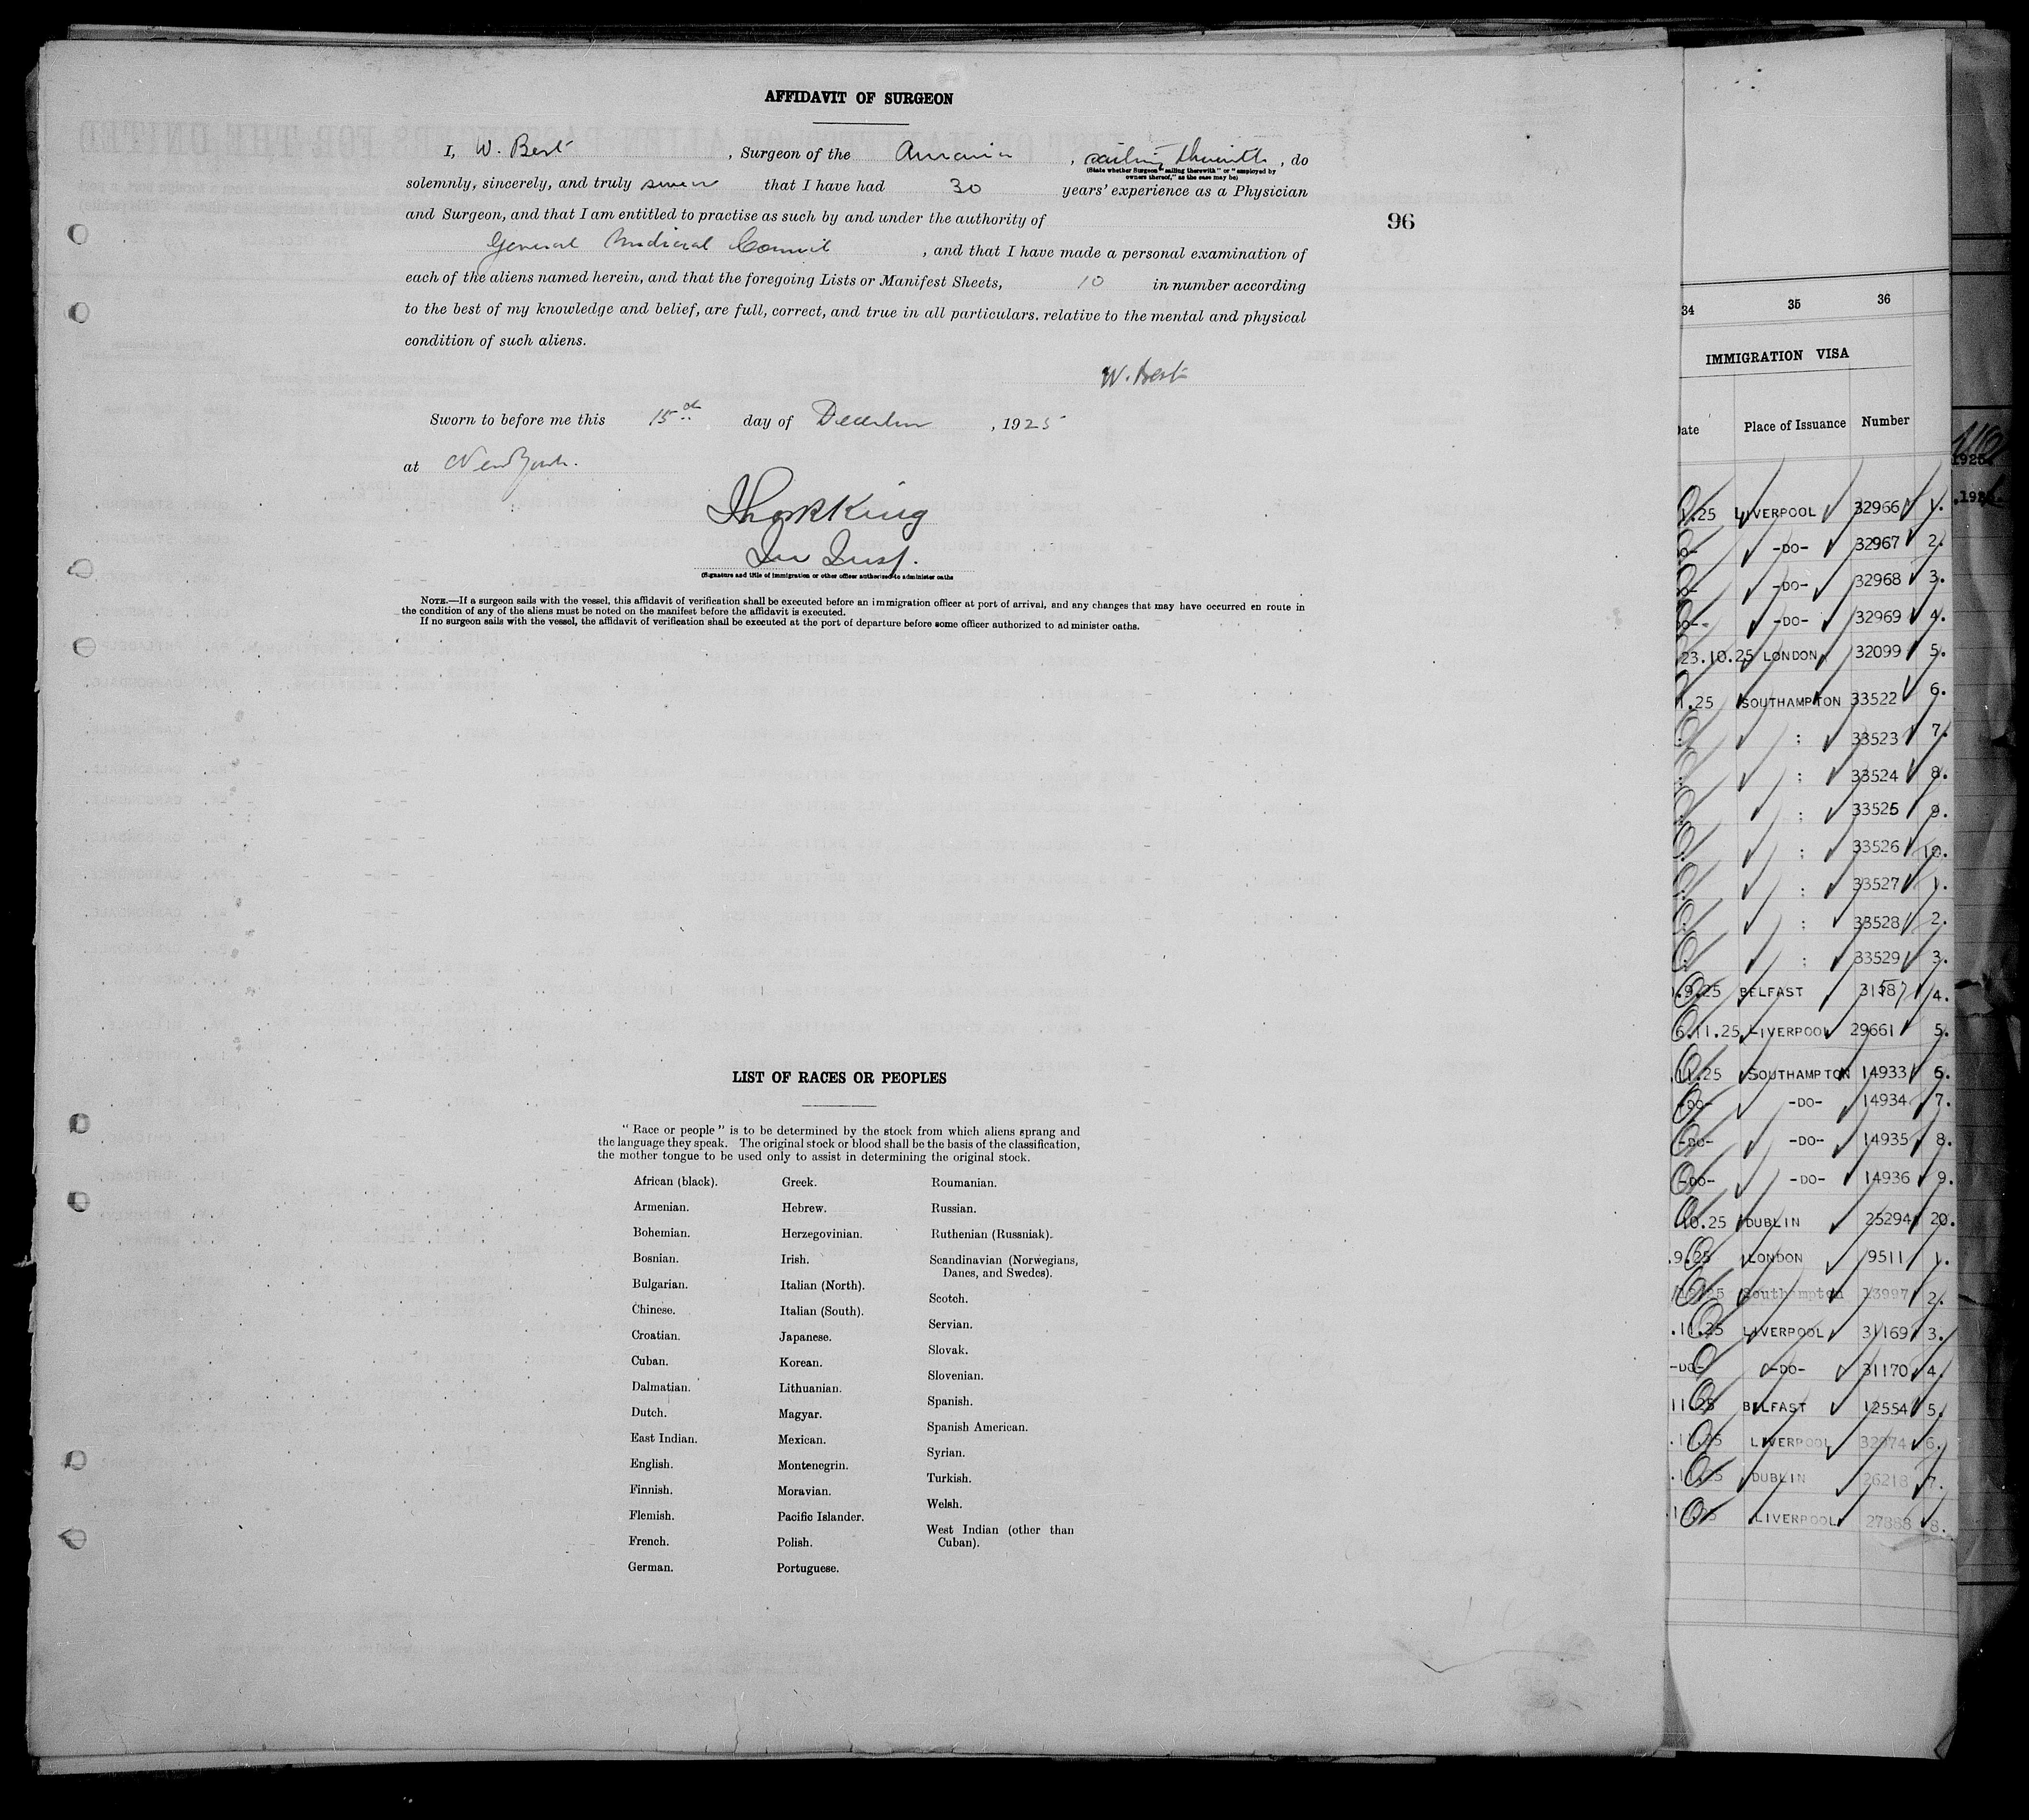 AFFIDAVIT OF SURGEON
I, W. Best, Surgeon of the, sailing therewith, do
(State whether Surgeon "sailing therewith" or "employed by
owners thereof," as the case may be)
solemnly, sincerely, and truly swear that I have had 30 years' experience as a Physician
and Surgeon, and that I am entitled to practise as such by and under the authority of
96
General Medical Council, and that I have made a personal examination of
each of the aliens named herein, and that the foregoing Lists or Manifest Sheets, 10 in number according
to the best of my knowledge and belief, are full, correct, and true in all particulars. relative to the mental and physical
condition of such aliens.
W. Best
Sworn to before me this 15th day of December, 1925
at New York.
King
Im Insp.
(Signature and title of immigration or other officer authorized to administer oaths
NOTE.—If a surgeon sails with the vessel, this affidavit of verification shall be executed before an immigration officer at port of arrival, and any changes that may have occurred en route in
the condition of any of the aliens must be noted on the manifest before the affidavit is executed.
If no surgeon sails with the vessel, the affidavit of verification shall be executed at the port of departure before some officer authorized to administer oaths.
LIST OF RACES OR PEOPLES
"Race or people" is to be determined by the stock from which aliens sprang and
the language they speak. The original stock or blood shall be the basis of the classification,
the mother tongue to be used only to assist in determining the original stock.
African (black).
Armenian.
Bohemian.
Bosnian.
Bulgarian.
Chinese.
Croatian.
Cuban.
Dalmatian.
Dutch.
East Indian.
English.
Finnish.
Flemish.
French.
German.
Greek.
Hebrew.
Herzegovinian.
Irish.
Italian (North).
Italian (South).
Japanese.
Korean.
Lithuanian.
Magyar.
Mexican.
Montenegrin.
Moravian.
Pacific Islander.
Polish.
Portuguese.
Roumanian.
Russian.
Ruthenian (Russniak).
Scandinavian (Norwegians,
Danes, and Swedes).
Scotch.
Servian.
Slovak.
Slovenian.
Spanish.
Spanish American.
Syrian.
Turkish.
Welsh.
West Indian (other than
Cuban).
34 35 36
IMMIGRATION VISA
Date Place of Issuance Number
1.25 LIVERPOOL 32966 1.
-DO- 32967 2.
-DO- 32968 3.
-DO- 32969 4.
23.10.25 LONDON 32099 5.
1.25 SOUTHAMPTON 33522 6.
; 33523 7.
; 33524 8.
; 33525 9.
; 33526 10.
; 33527 1.
; 33528 2.
; 33529 3.
.9.25 BELFAST 31587 4.
6.11.25 LIVERPOOL 29661 5.
.11.25 SOUTHAMPTON 14933 6.
-DO- -DO- 14934 7.
-DO- -DO- 14935 8.
-DO- -DO- 14936 9.
10.25 DUBLIN 25294 20.
.9.25 LONDON 9511 1.
Southampton 13997 2.
.11.25 LIVERPOOL 31169 3.
-DO- -DO- 31170 4.
11.25 BELFAST 12554 5.
.11.25 LIVERPOOL 32974 6.
DUBLIN 26218 7.
LIVERPOOL 27888 8.
1925.